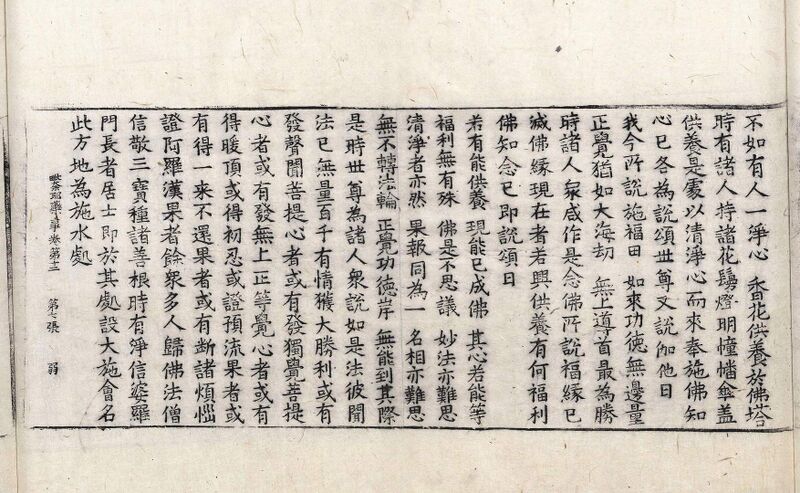 不如有人一淨心　香花供養於佛塔
時有諸人持諸花鬘燈明幢幡傘蓋
供養是處以清淨心而來奉施佛知
心已各為說頌世尊又說伽他曰
我今所說施福田　如來功德無邊量
正覺猶如大海劫　無上導首最為勝
時諸人衆咸作是念佛所說福緣已
滅佛緣現在者若興供養有何福利
佛知念已即說頌曰
若有能供養　現能已成佛　其心若能等
福利無有殊　佛是不思議　妙法亦難思
清淨者亦然　果報同為一　名相亦難思
無不轉法輪　正覺功德岸　無能到其際
是時世尊為諸人衆說如是法彼聞
法已無量百千有情獲大勝利或有
發聲聞菩提心者或有發獨覺菩提
心者或有發無上正等覺心者或有
得暖頂或得初忍或證預流果者或
有得一來不還果者或有斷諸煩惱
證阿羅漢果者餘衆多人歸佛法僧
信敬三寶種諸善根時有淨信婆羅
門長者居士即於其處設大施會名
此方地為施水處
第七張　弱